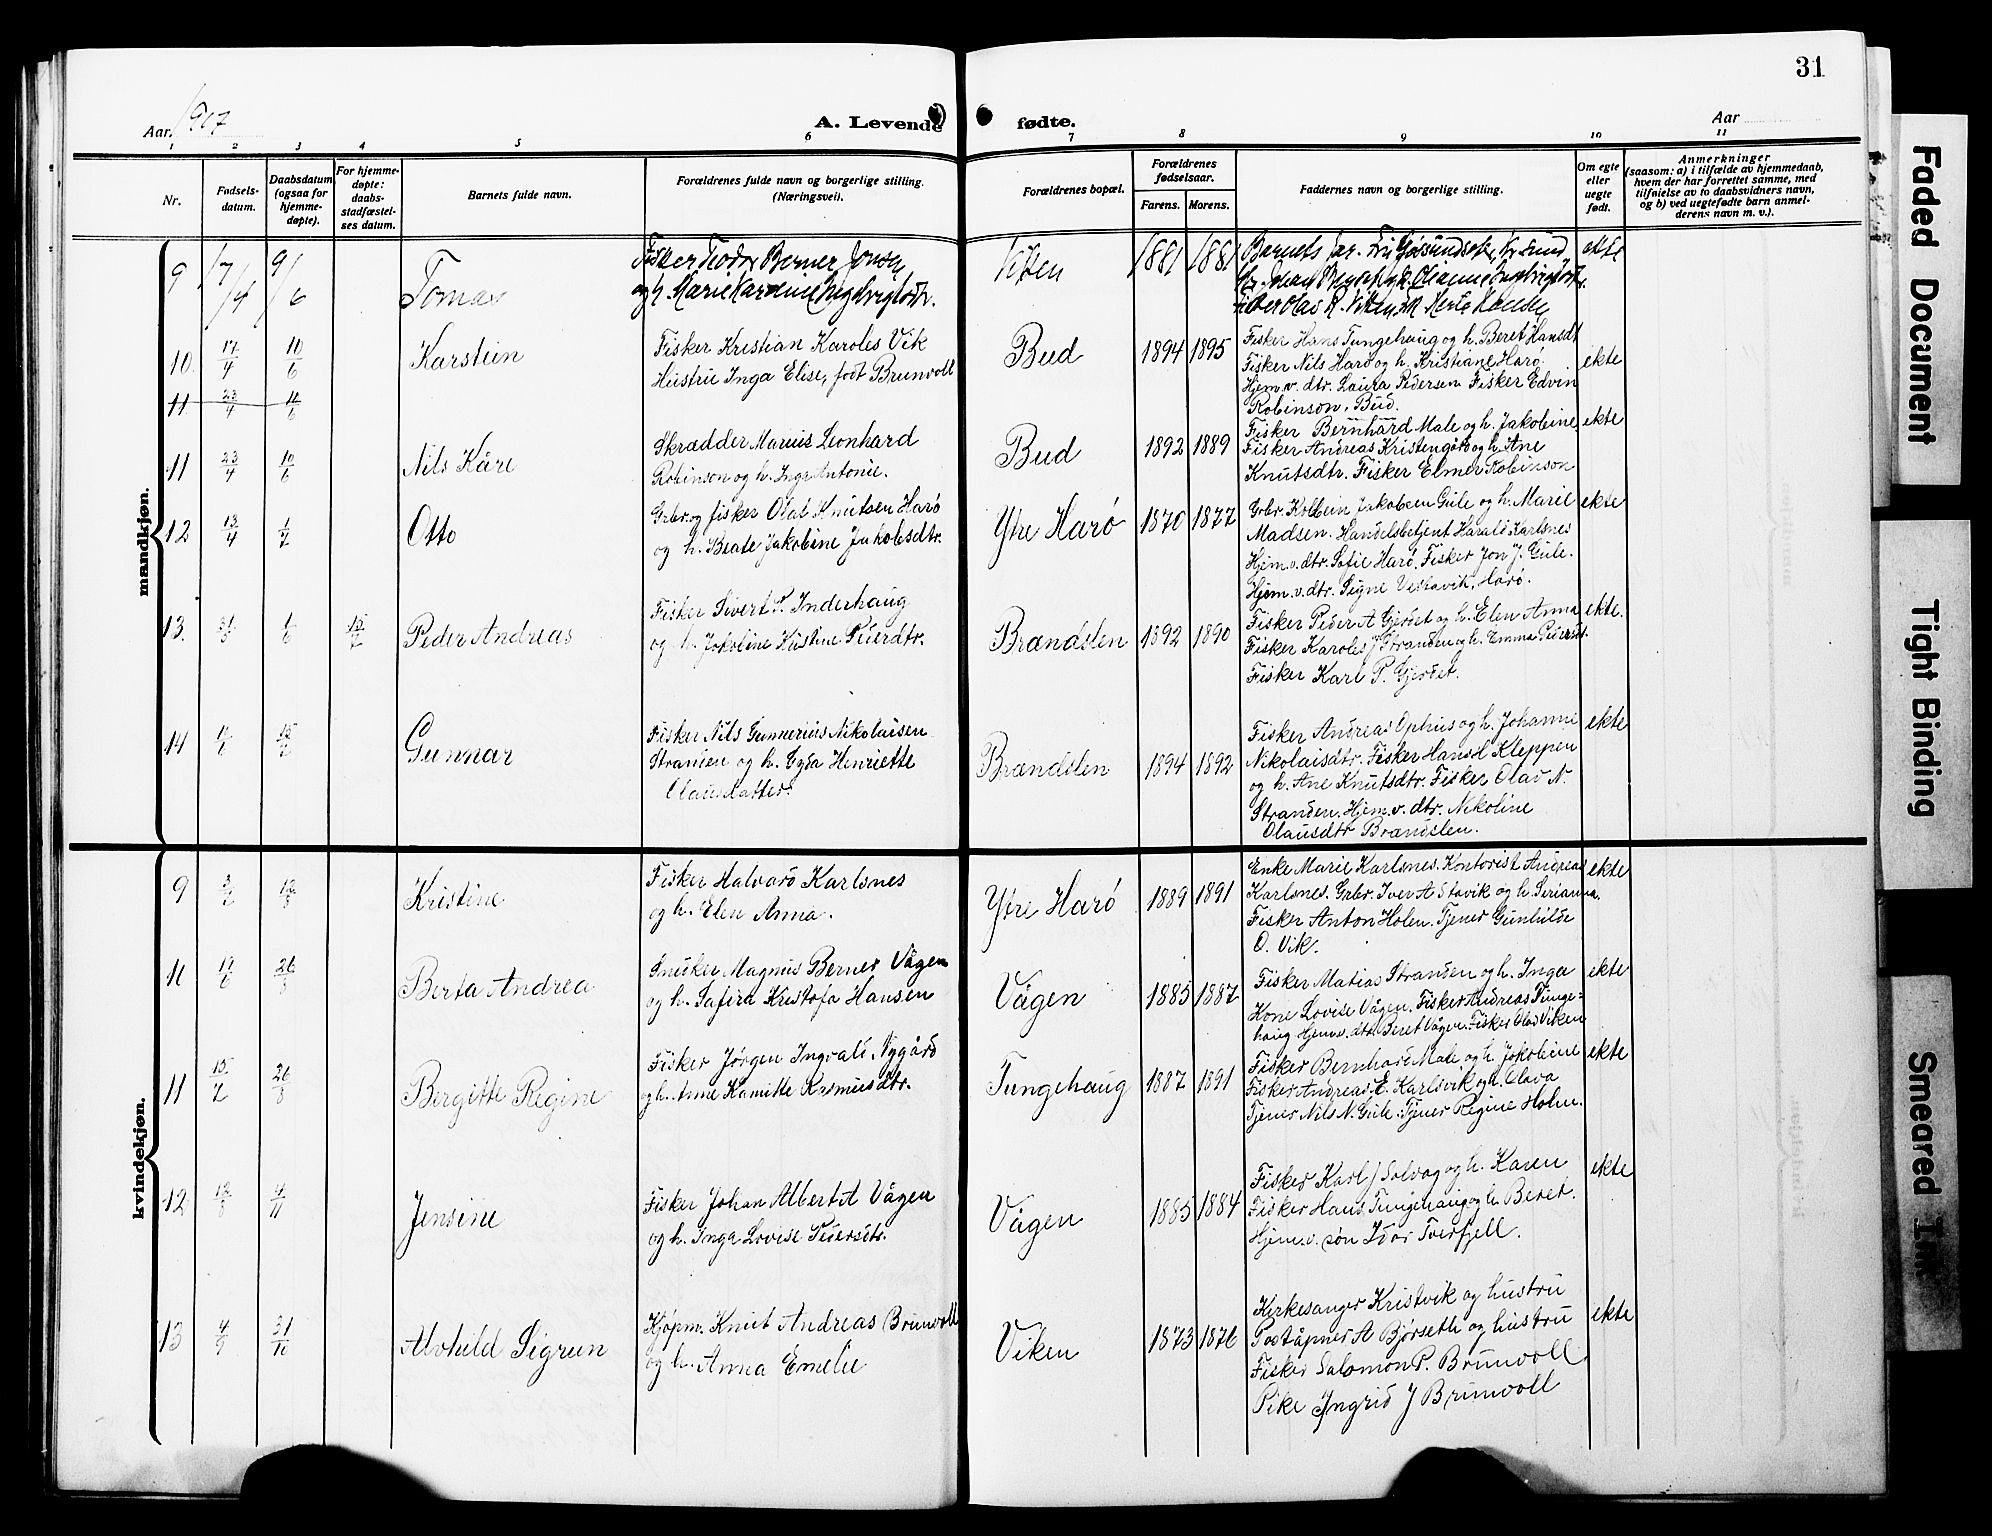 31
Aar. 1917 A. Levende fødte. Aar
1 2 3 4 5 6 7 8 9 10 11
Nr. Fødsels-datum. Daabsdatum (ogsaa for hjemme-døpte). For hjemme-døpte: daabs-stadfæstel-ses datum. Barnets fulde navn. Forældrenes fulde navn og borgerlige stilling. (Næringsvei). Forældrenes bopæl. Forældrenes fødselsaar. Farens. Morens. Faddernes navn og borgerlige stilling. Om egte eller uegte født. Anmerkninger (saasom: a) i tilfælde av hjemmedaab, hvem der har forrettet samme, med tilføielse av to daabsvidners navn, og b) ved uegtefødte barn anmel-derens navn m. v.).
mandkjøn.
9 17/4 9/6 Tomas
Fisker Teodor Berner
og h. Marie
Viken 1881 1881 Barnets far. ekte
10. 17/4 10/6 Karstein
Fisker Kristian Karoles Vik
Hustru Inga Elise, født Brunvoll
Bud 1894 1895
Fisker Hans Tungehaug og h. Beret Hansdt
Fisker Nils Harø og h. Kristiane Harø.
Hjem.v. dtr. Laura Pedersen Fisker Edvin
Robinson, Bud.
ekte
11 23/4 11/6
11 23/4 10/6 Nils Kåre
Skrædder Marius Leonhard
Robinson og h. Inga Antonie.
Bud 1892 1889
Fisker Bernhard Male og h. Jakobine
Fisker Andreas og h. Ane
Knutsdtr. Fisker Elmer Robinson
ekte
12 13/4 1/7 Otto
Grbr. og fisker Olab Knutsen Harø
og h. Beate Jakobine Jakobsdtr.
Ytre Harø 1870 1877
Grbr. Jakobsen Gule og h. Marie
Madsen. Handelsbetjent Harald Karlsnes
Hjem.v. dtr. Sofie Harø. Fisker Jon J. Gule.
Hjem.v. dtr. Signe Vestavik, Harø.
ekte
13. 31/5 1/6 15/7 Peder Andreas
Fisker Sivert P. Inderhaug
og h. Jakobine Kristine Pedersdtr.
Brændslen 1892 1890
Fisker Peder A Gjerdet og h. Elen Anna
Fisker Karoles J Stranden og h. Emma Pedersdt.
Fisker Karl P. Gjerdet.
ekte.
14 Gunnar
Fisker Nils Gunnerius Nikolaisen
Stranden og h. Gyda Henriette
Olausdatter.
Brændslen 1894 1892
Fisker Andreas Ophus og h. Johanne
Nikolaisdtr. Fisker Kleppen
og h. Ane Knutsdtr. Fisker Olav N.
Stranden. Hjem.v. dtr. Nikoline
Olausdtr Brændslen.
ekte
kvindekjøn.
9 3/7 12/8 Kristine
Fisker Halvard Karlsnes
og h. Elen Anna.
Ytre Harø 1889 1891
Enke Marie Karlsnes. Kontorist Andreas
Karlsnes. Grbr. Iver A Stavik og h. Serianna.
Fisker Anton Holen. Tjener Gunhilde
O. Vik.
ekte
11 19/6 26/8 Berta Andrea
Snedker Magnus Berner Vågen
og h. Safira Kristofa Hansen
Vågen 1885 1887
Fisker Matias Stranden og h. Inga
Kone Lovise Vågen. Fisker Andreas Tunge=
haug Hjem.v. dtr. Beret Vågen. Fisker Olav Viken
ekte
11 15/7 26/8 Bergitte Regine
Fisker Jørgen Ingvald Nygård
og h. Anne Kamitte Rasmusdtr.
Tungehaug 1887 1891
Fisker Bernhard Male og h. Jakobine
Fisker Andreas E. Karlsvik og h. Olava
Tjener Nils N. Gule. Tjener Regine Holm.
ekte
12 12/8 4/11 Jensine
Fisker Johan Albert A Vågen
og h. Inga Lovise Pedersdtr.
Vågen 1885 1884
Fisker Karl J Solvag og h. Karen
Fisker Hans Tungehaug og h. Beret.
Hjem.v. søn Idar Tverfjell.
ekte
13 4/9 31/10 Alvhild Sigrun
Kjøpm. Knut Andreas Brunvoll
og h. Anna Emelie
Viken 1873 1876
Kirkesanger Kristvik og hustru
Poståpner A Bjørseth og hustru
Fisker Salomon P. Brunvoll
Pike Ingrid J Brunvoll
ekte
Faded Document
Tight Binding
Smeared Ink